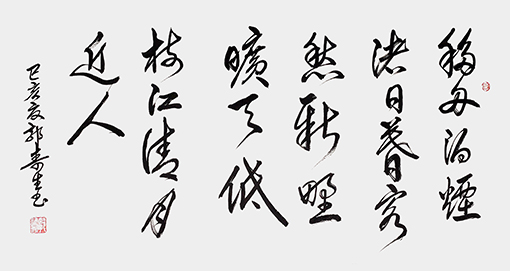 移舟泊煙
渚日暮客
愁新野
曠天低
樹江清月
近人
己亥夏郭